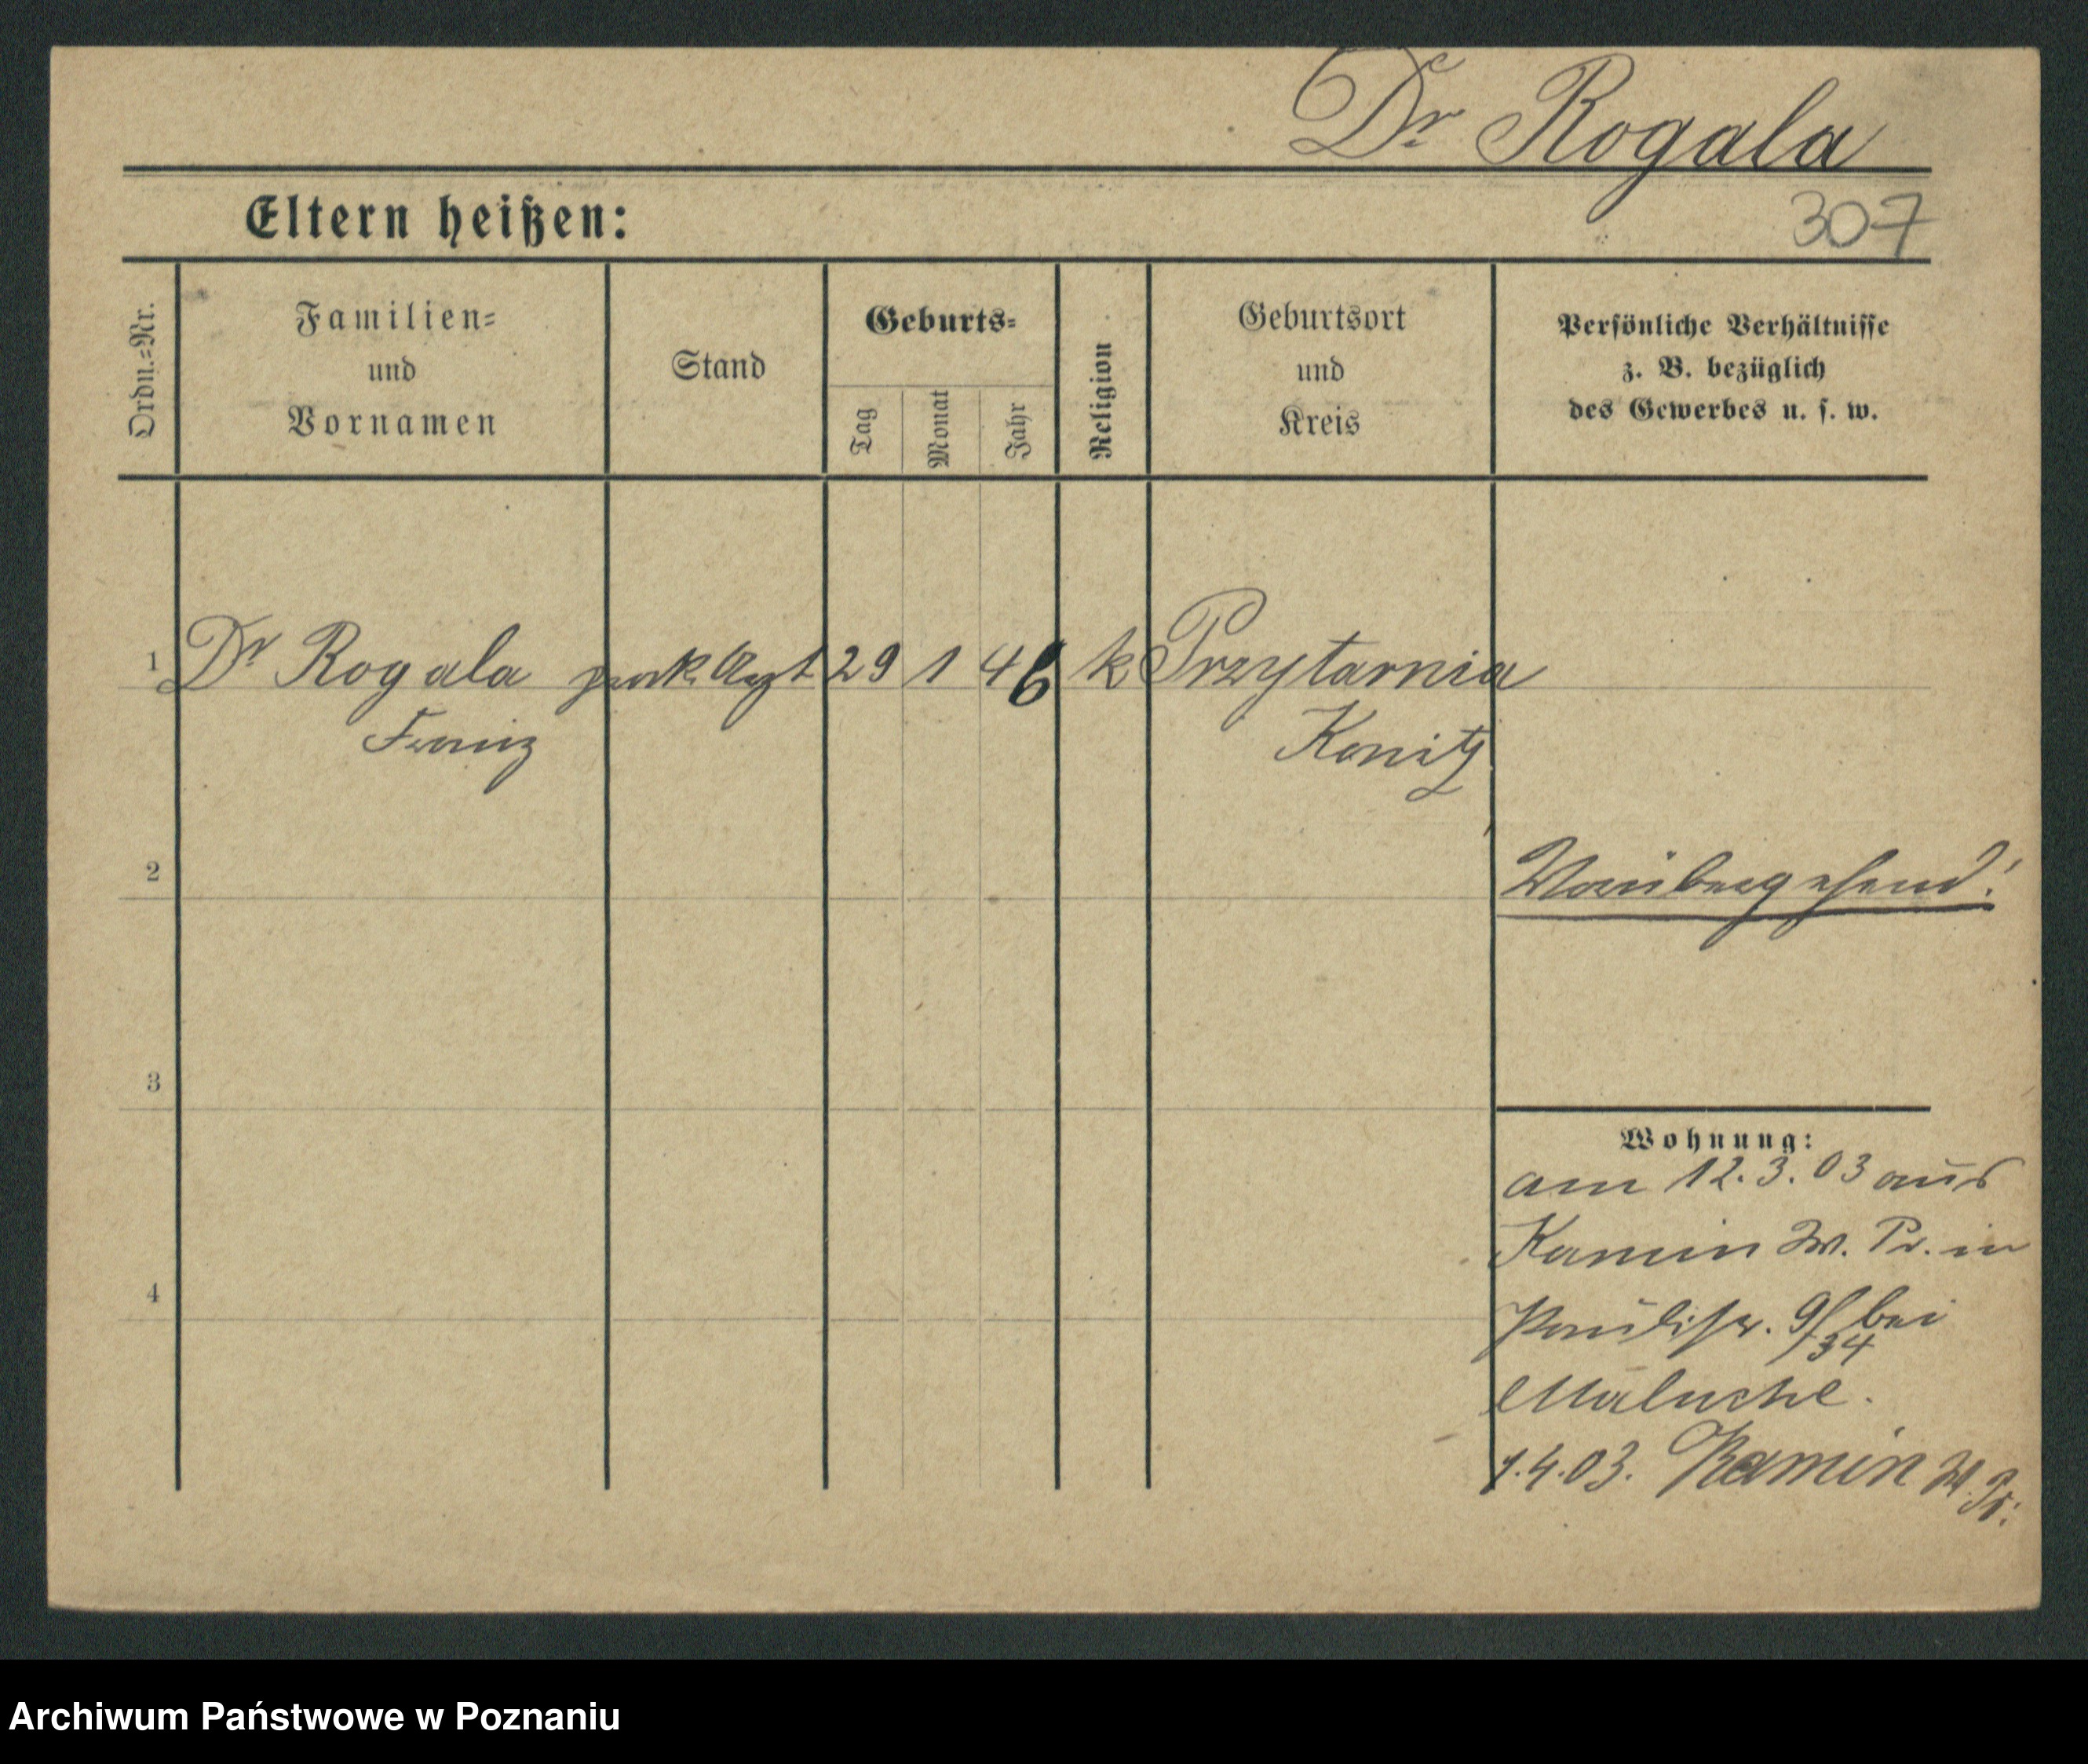 Dr Rogala
Eltern heißen:
307
Ordn.=Nr.
Familien=
und
Vornamen
Stand
Geburts=
Tag
Monat
Jahr
Religion
Geburtsort
und
Kreis
Persönliche Verhältnisse
z. B. bezüglich
des Gewerbes u. s. w.
1 Dr Rogala prak. Arzt 29 1 46 k Przytarnia
Franz Konitz
2
Vorübergehend!
3
Wohnung:
am 12.3.03 aus
Kamin W. Pr. in
4
Paulistr. 9/34 bei
Maluche.
1.4.03. Kamin W. Pr.
Archiwum Państwowe w Poznaniu